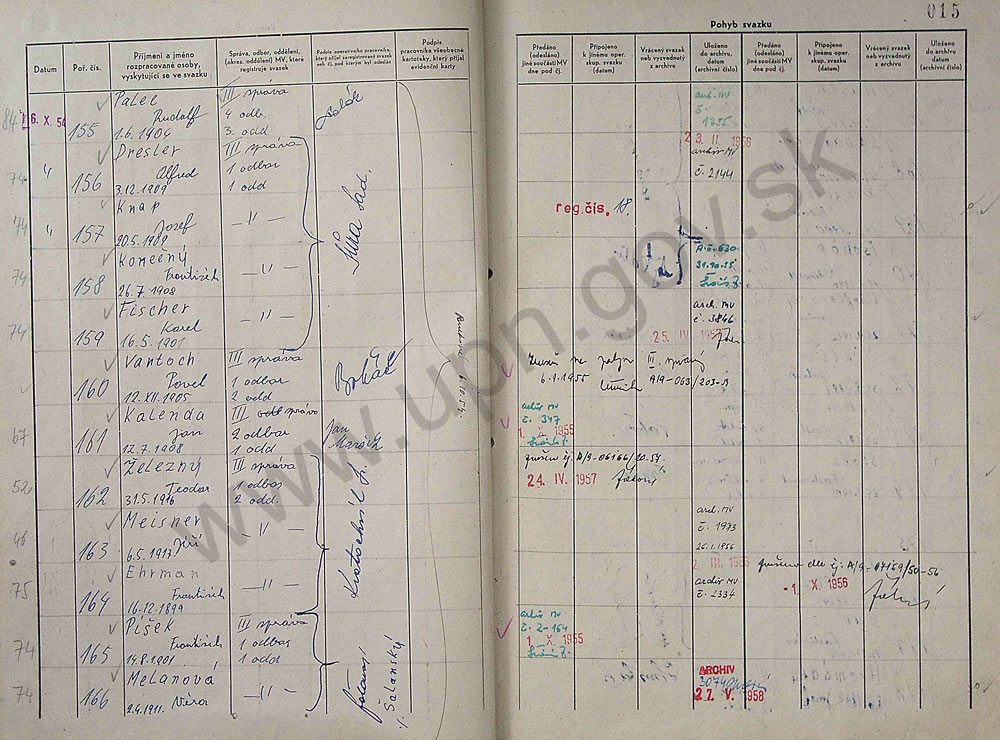 015
Pohyb svazku
Datum
Poř. čís.
Příjmení a jméno
rozpracované osoby,
vyskytující se ve svazku
Správa, odbor, oddělení,
(okres. oddělení) MV, které
registruje svazek
Podpis operativního pracovníka,
který přijal zaregistrovaný svazek
neb čj. pod kterým byl odeslán
Podpis
pracovníka všeobecné
kartoteky, který přijal
evidenční karty
Předáno
(odesláno)
jiné součásti MV
dne pod čj.
Připojeno
k jinému oper.
skup. svazku
(datum)
Vrácený svazek
neb vyzvednutý
z archivu
Uloženo
do archivu,
datum
(archivní číslo)
Předáno
(odesláno)
jiné součásti MV
dne pod čj.
Připojeno
k jinému oper.
skup. svazku
(datum)
Vrácený svazek
neb vyzvednutý
z archivu
Uloženo
do archivu,
datum
(archivní číslo)
84
6. X. 54
155
Palec
Rudolf
1.6.1904
III správa
4 odb.
3. odd
arch. MV
č.
1255
74
"
156
Dresler
Alfred
3.12.1909
III správa
1 odbor
1 odd
23. II 1956
archiv MV
č. 2144
74
"
157
Knap
Josef
20.5.1909
— " —
reg. čís. 18.
74
158
Konečný
František
26.7.1908
— " —
A-č-630
31.10.55
74
159
Fischer
Karel
16.5.1901
— " —
arch. MV
č. 3846
25. IV 1957
160
Vantoch
Pavel
12.VII.1905
III správa
1 odbor
2 odd
Boháč
III. správy
6.1.1955
A/9-063/203-
67
161
Kalenda
Jan
12.7.1908
III správa
2 odbor
1 odd
Jan
archiv MV
č. 347
1. X. 1955
52
162
Železný
Teodor
31.5.1916
III správa
1 odbor
2 odd.
zrušen čj. A/9-06166/20.54.
24. IV. 1957
46
163
Meisner
Jiří
6.5.1917
— " —
Kratochvíl J.
arch. MV
č. 1973
26.1.1956
75
164
Ehrman
František
16.12.1899
— " —
2. III 1956
archiv MV
č. 2334
zrušen dle čj. A/9-07159/50-56
-1. X. 1956
74
165
Píšek
František
14.8.1901
III správa
1 odbor
1 odd
archiv MV
č. 2-164
1. X. 1955
74
166
Melanová
Věra
2.4.1911.
— " —
Salanský
ARCHIV
3074
27. V. 1958
www.upn.gov.sk